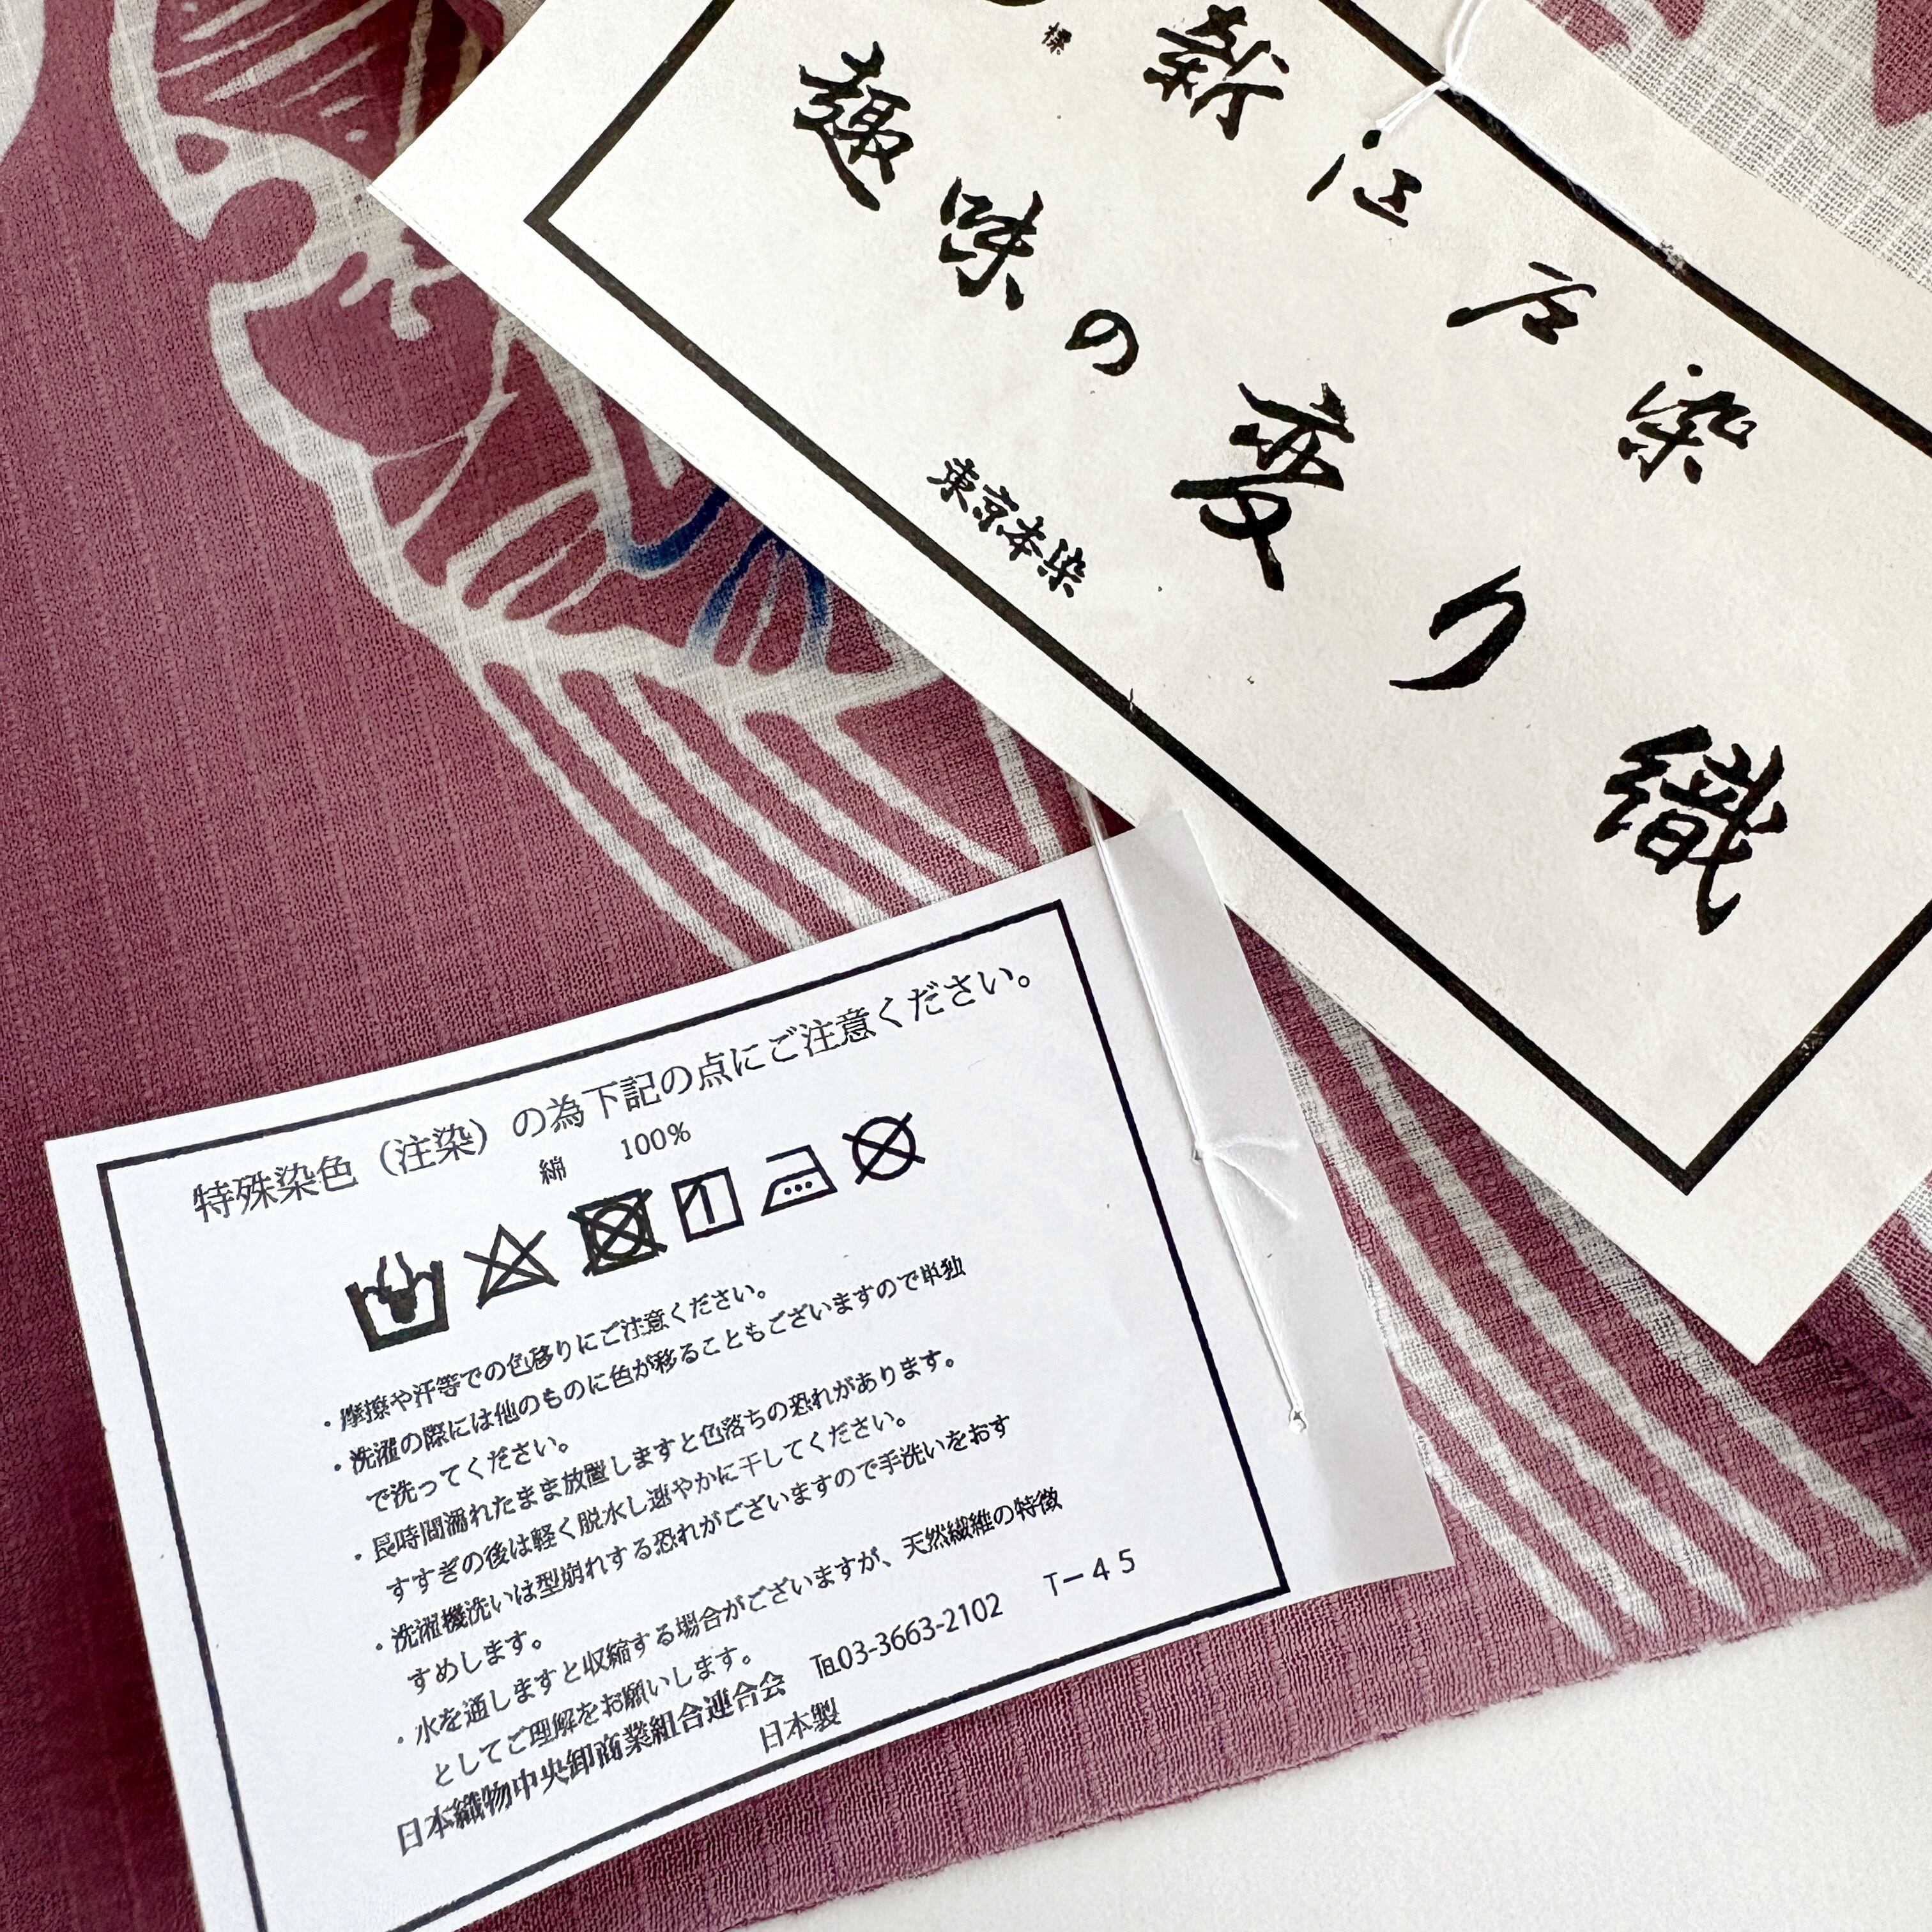 新江戸染
趣味の変り織
東京本染
特殊染色（注染）の為下記の点にご注意ください。
綿 100%
・摩擦や汗等での色移りにご注意ください。
・洗濯の際には他のものに色が移ることもございますので単独
で洗ってください。
・長時間濡れたまま放置しますと色落ちの恐れがあります。
すすぎの後は軽く脱水し速やかに干してください。
・洗濯機洗いは型崩れする恐れがございますので手洗いをおす
すめします。
・水を通しますと収縮する場合がございますが、天然繊維の特徴
としてご理解をお願いします。
日本織物中央卸商業組合連合会 ℡03-3663-2102 T－45
日本製